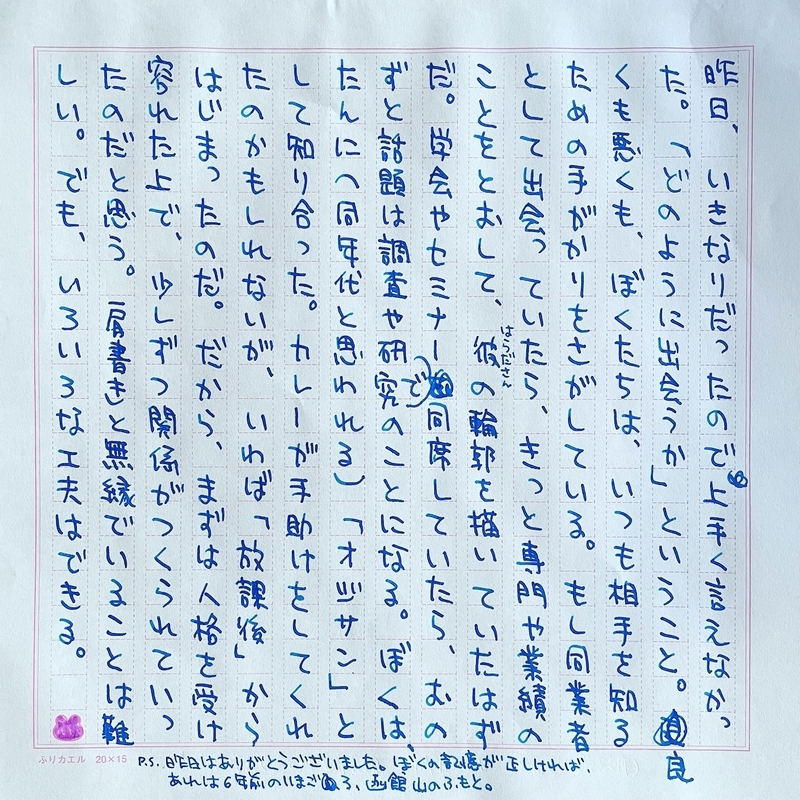 昨日、いきなりだったので上手く言えなかっ
た。「どのように出会うか」ということ。良
くも悪くも、ぼくたちは、いつも相手を知る
ための手がかりをさがしている。もし同業者
として出会っていたら、きっと専門や業績の
はらださん
ことをとおして、彼の輪郭を描いていたはず
だ。学会やセミナーで同席していたら、おの
ずと話題は調査や研究のことになる。ぼくは、
たんに(同年代と思われる)「オジサン」と
して知り合った。カレーが手助けをしてくれ
たのかもしれないが、いわば「放課後」から
はじまったのだ。だから、まずは人格を受け
容れた上で、少しずつ関係がつくられていっ
たのだと思う。肩書きと無縁でいることは難
しい。でも、いろいろな工夫はできる。
ふりカエル 20×15
P.S. 昨日はありがとうございました。ぼくの記憶が正しければ、
あれは6年前のいまごろ、函館山のふもと。